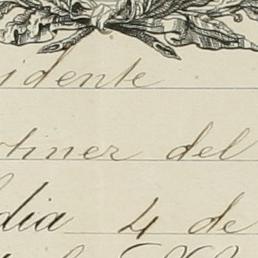 idente
tiner del
dia 4 de